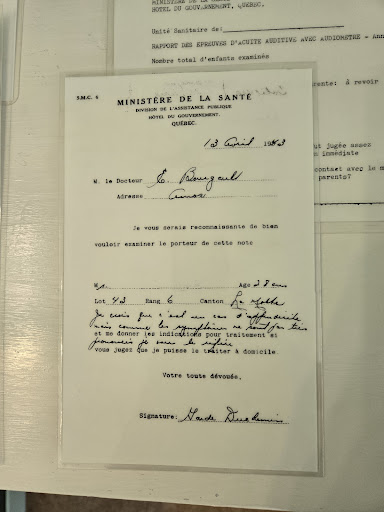 MINISTÈRE DE LA SANTÉ
HÔTEL DU GOUVERNEMENT, QUÉBEC.
Unité Sanitaire de:
RAPPORT DES EPREUVES D'ACUITE AUDITIVE AVEC AUDIOMETRE - Ann
Nombre total d'enfants examinés
rente: à revoir
ut jugée assez
n immédiate
contact avec le m
parents?
S.M.C. 6
MINISTÈRE DE LA SANTÉ
DIVISION DE L'ASSISTANCE PUBLIQUE
HÔTEL DU GOUVERNEMENT.
QUÉBEC.
13 avril 1943
M. le Docteur E. Bourgault
Adresse Amos
Je vous serais reconnaissante de bien
vouloir examiner le porteur de cette note
M Age 28 ans
Lot 43 Rang 6 Canton La Motte
Je crois que c'est un cas d'appendicite
mais comme les symptômes ne sont pas très
et me donner les indications pour traitement si
je vous le réfère
vous jugez que je puisse le traiter à domicile.
Votre toute dévouée,
Signature: Garde Duchemin